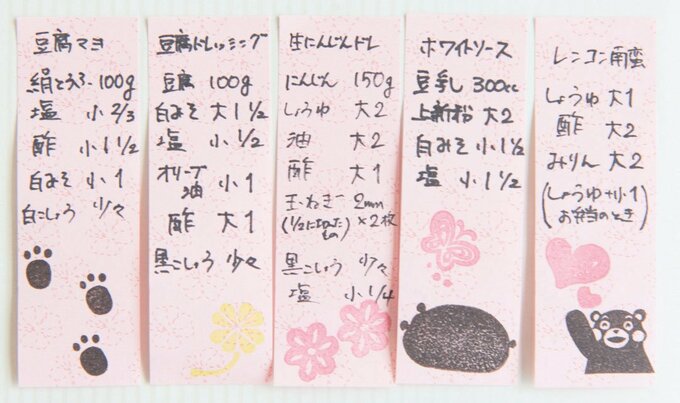 豆腐マヨ
絹とうふ 100g
塩 小 2/3
酢 小 1 1/2
白みそ 小 1
白こしょう 少々
豆腐ドレッシング
豆腐 100g
白みそ 大 1 1/2
塩 小 1/2
オリーブ油 小 1
酢 大 1
黒こしょう 少々
生にんじんドレ
にんじん 150g
しょうゆ 大 2
油 大 2
酢 大 1
玉ねぎ 2mm
(1/2に切ったもの) ×2枚
黒こしょう 少々
塩 小 1/4
ホワイトソース
豆乳 300cc
上新粉 大 2
白みそ 小 1 1/2
塩 小 1 1/2
レンコン南蛮
しょうゆ 大 1
酢 大 2
みりん 大 2
(しょうゆ+小1
お弁当のとき)